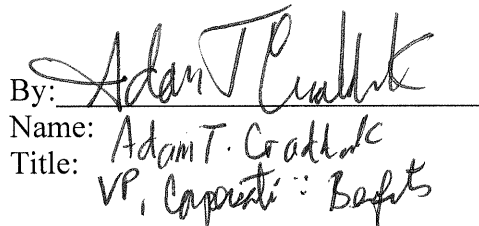 By: Adam T Craddock
Name: Adam T. Craddock
Title:
VP, Compensation & Benefits